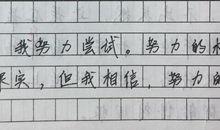 我努力尝试。努力的
果实，但我相信，努力的